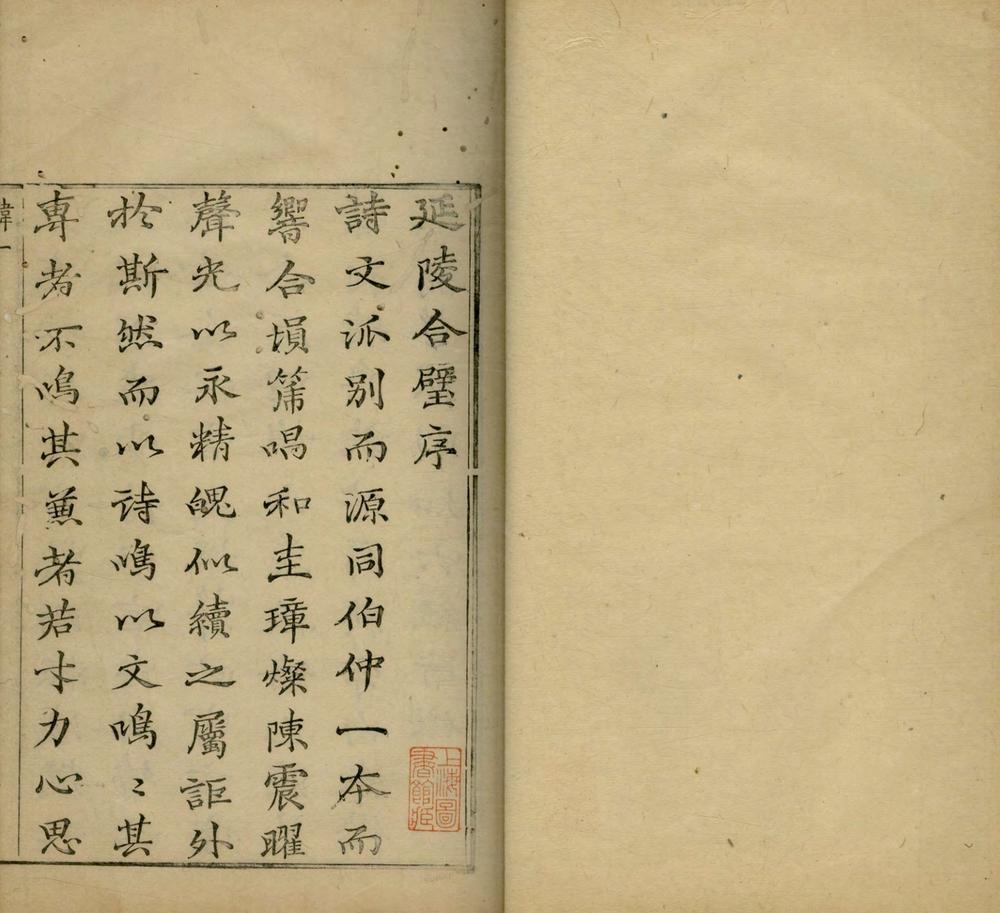 延陵合璧序
詩文派別而源同伯仲一本而
響合塤箎唱和圭璋燦陳震曜
聲光以永精魄似續之屬詎外
於斯然而以诗鳴以文鳴〻其
専者不鳴其蒹者若才力心思
上海圖
書館藏